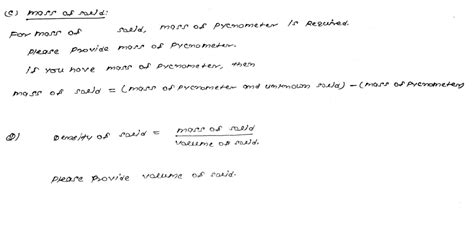 (c) mass of solid:
For mass of solid, mass of Pycnometer is Required.
please provide mass of Pycnometer.
if you have mass of Pycnometer, then
mass of solid = (mass of Pycnometer and unknown solid) - (mass of Pycnometer)
D) Density of solid = mass of solid / volume of solid.
please Provide volume of solid.